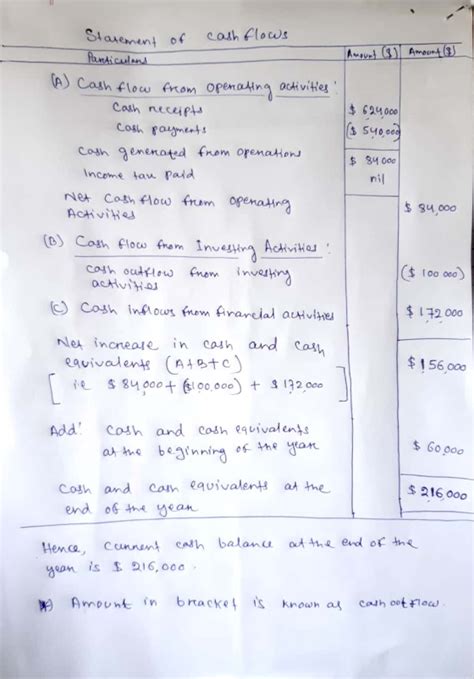 Statement of cash flows
Particulars Amount ($) Amount ($)
(A) Cash flow from operating activities:
Cash receipts $ 624,000
Cash payments ($ 540,000)
Cash generated from operations $ 84 000
Income tax paid nil
Net cash flow from operating
Activities $ 84,000
(B) Cash flow from Investing Activities:
cash outflow from investing
activities ($ 100 000)
(C) Cash inflows from financial activities $ 172 000
Net increase in cash and cash
equivalents (A+B+C) $ 156,000
[ ie $ 84,000 + ($100,000) + $ 172,000 ]
Add: cash and cash equivalents
at the beginning of the year $ 60,000
Cash and cash equivalents at the
end of the year $ 216,000
Hence, current cash balance at the end of the
year is $ 216,000.
Amount in bracket is known as cash outflow.